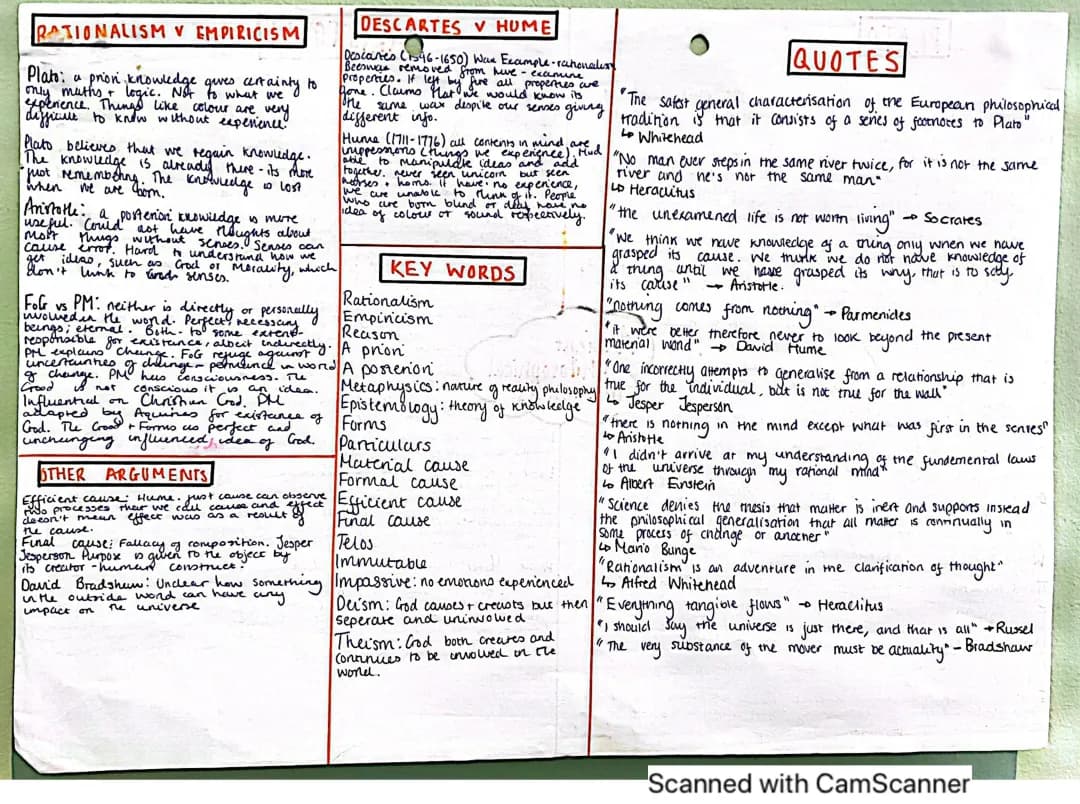 RATIONALISM V EMPIRICISM
Plato: a priori knowledge gives certainty to
only maths + logic. Not to what we
experience. Things like colour are very
difficult to know without experience.
Plato believes that we regain knowledge.
The knowledge is already there - its more
just remembering. The knowledge is lost
when we are born.
Aristotle: a posteriori knowledge is more
useful. Could not have thoughts about
most things without senses. Senses can
cause error. Hard to understand how we
get ideas, such as God or Morality, which
don't link to senses.
FoG vs PM: neither is directly or personally
involved in the world. Perfect, necessary
beings; eternal. Both - to some extent -
responsible for existance, albeit indirectly.
PM explains change. FoG refuge against
uncertainties of change - permanence in world
of change. PM has consciousness. The
Good is not conscious it is an idea.
Influential on Christian God. PM
adapted by Aquines for existance of
God. The Good + Forms as perfect and
unchanging influenced idea of God.
OTHER ARGUMENTS
Efficient cause: Hume. Just cause can observe
two processes that we call cause and effect
doesn't mean effect was as a result of
the cause.
Final cause: Fallacy of composition. Jesper
Jesperson Purpose is given to the object by
its creator - human construct.
David Bradshaw: Unclear how something
in the outside world can have any
impact on the universe
DESCARTES V HUME
Descartes (1596-1650) Wax Example - rationalism
Beeswax removed from hive - examine
properties. If left by fire all properties are
gone. Claims that we would know its
the same wax despite our senses giving
different info.
Hume (1711-1776) all contents in mind are
impressions (things we experience). Mind
able to manipulate ideas and add
together. never seen unicorn but seen
horses + horns. If have no experience,
we are unable to think of it. People
who are born blind or deaf have no
idea of colour or sound respectively.
KEY WORDS
Rationalism
Empiricism
Reason
A priori
A posteriori
Metaphysics: nature of reality philosophy
Epistemology: theory of knowledge
Forms
Particulars
Material cause
Formal cause
Efficient cause
Final cause
Telos
Immutable
Impassive: no emotions experienced
Deism: God causes + creates but then
seperate and uninvolved
Theism: God both creates and
continues to be involved in the
world.
QUOTES
"The safest general characterisation of the European philosophical
tradition is that it consists of a series of footnotes to Plato"
↳ Whitehead
"No man ever steps in the same river twice, for it is not the same
river and he's not the same man"
↳ Heraclitus
"the unexamened life is not worth living" → Socrates
"We think we have knowledge of a thing only when we have
grasped its cause. We think we do not have knowledge of
a thing until we have grasped its why, that is to say,
its cause" → Aristotle.
"nothing comes from nothing" → Parmenides
"it were better therefore never to look beyond the present
material world" → David Hume
"One incorrectly attempts to generalise from a relationship that is
true for the individual, but is not true for the wall"
↳ Jesper Jesperson
"there is nothing in the mind except what was first in the senses"
↳ Aristotle
"I didn't arrive at my understanding of the fundemental laws
of the universe through my rational mind"
↳ Albert Einstein
"Science denies the thesis that matter is inert and supports instead
the philosophical generalisation that all matter is continually in
some process of change or another"
↳ Mario Bunge
"Rationalism is an adventure in the clarification of thought"
↳ Alfred Whitehead
"Everything tangible flows" → Heraclitus
"I should say the universe is just there, and that is all" → Russel
"The very substance of the mover must be actuality" - Bradshaw
Scanned with CamScanner